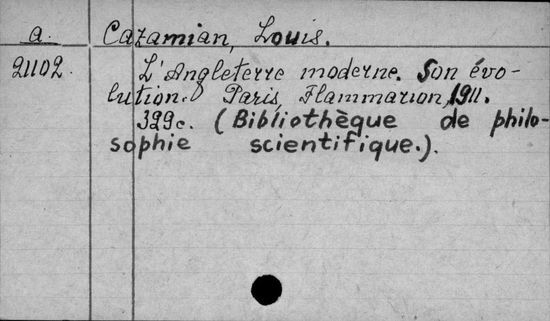 a. Cazamian, Louis.
21102. L'Angleterre moderne. Son évo-
lution. Paris, Flammarion, 1911.
329c. (Bibliothèque de philo-
sophie scientifique.).